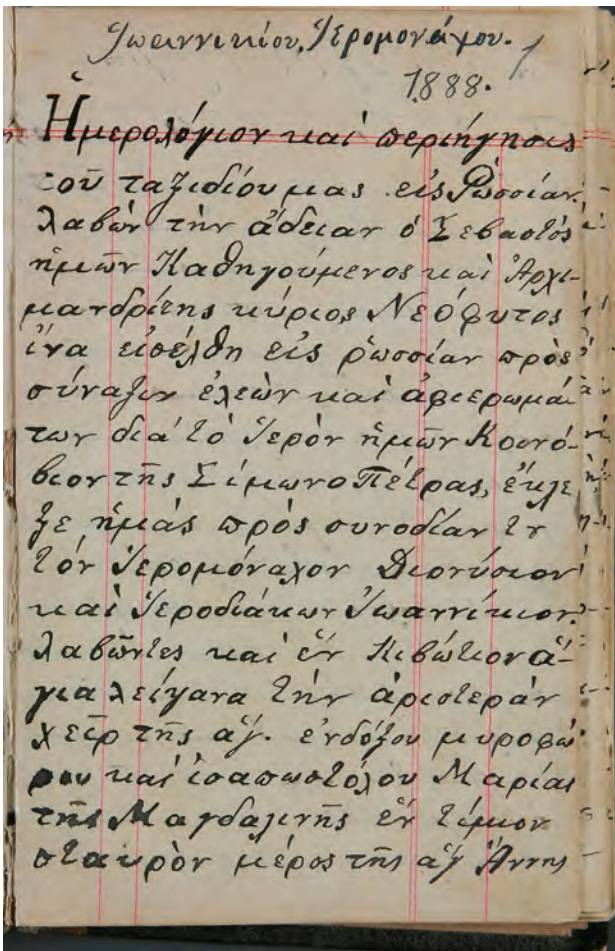 Ἰωαννικίου, Ἱερομονάχου.
1888.
Ἡμερολόγιον καὶ περιήγησις
τοῦ ταξιδίου μας εἰς Ῥωσσίαν.
λαβὼν τὴν ἄδειαν ὁ Σεβαστὸς
ἡμῶν Καθηγούμενος καὶ Ἀρχι-
μανδρίτης κύριος Νεόφυτος
ἵνα εἰσέλθη εἰς ῥωσσίαν πρὸς
σύναξιν ἐλεῶν καὶ ἀφιερωμά-
των διὰ τὸ Ἱερὸν ἡμῶν Κοινό-
βιον τῆς Σίμωνο Πέτρας, ἔκλε
ξε ἡμᾶς πρὸς συνοδίαν τ
τὸν Ἱερομόναχον Διονύσιον
καὶ Ἱεροδιάκων Ἰωαννίκιον.
λαβῶντες καὶ ἓν Κιβώτιον ἅ-
για λείψανα τὴν ἀριστερὰν
χεῖρ τῆς ἁγ. ἐνδόξου μυροφώ
ρου καὶ ἰσαπωστόλου Μαρίας
τῆς Μαγδαλινῆς ἓν τίμιον
σταυρὸν μέρος τῆς ἁγ Ἄννης